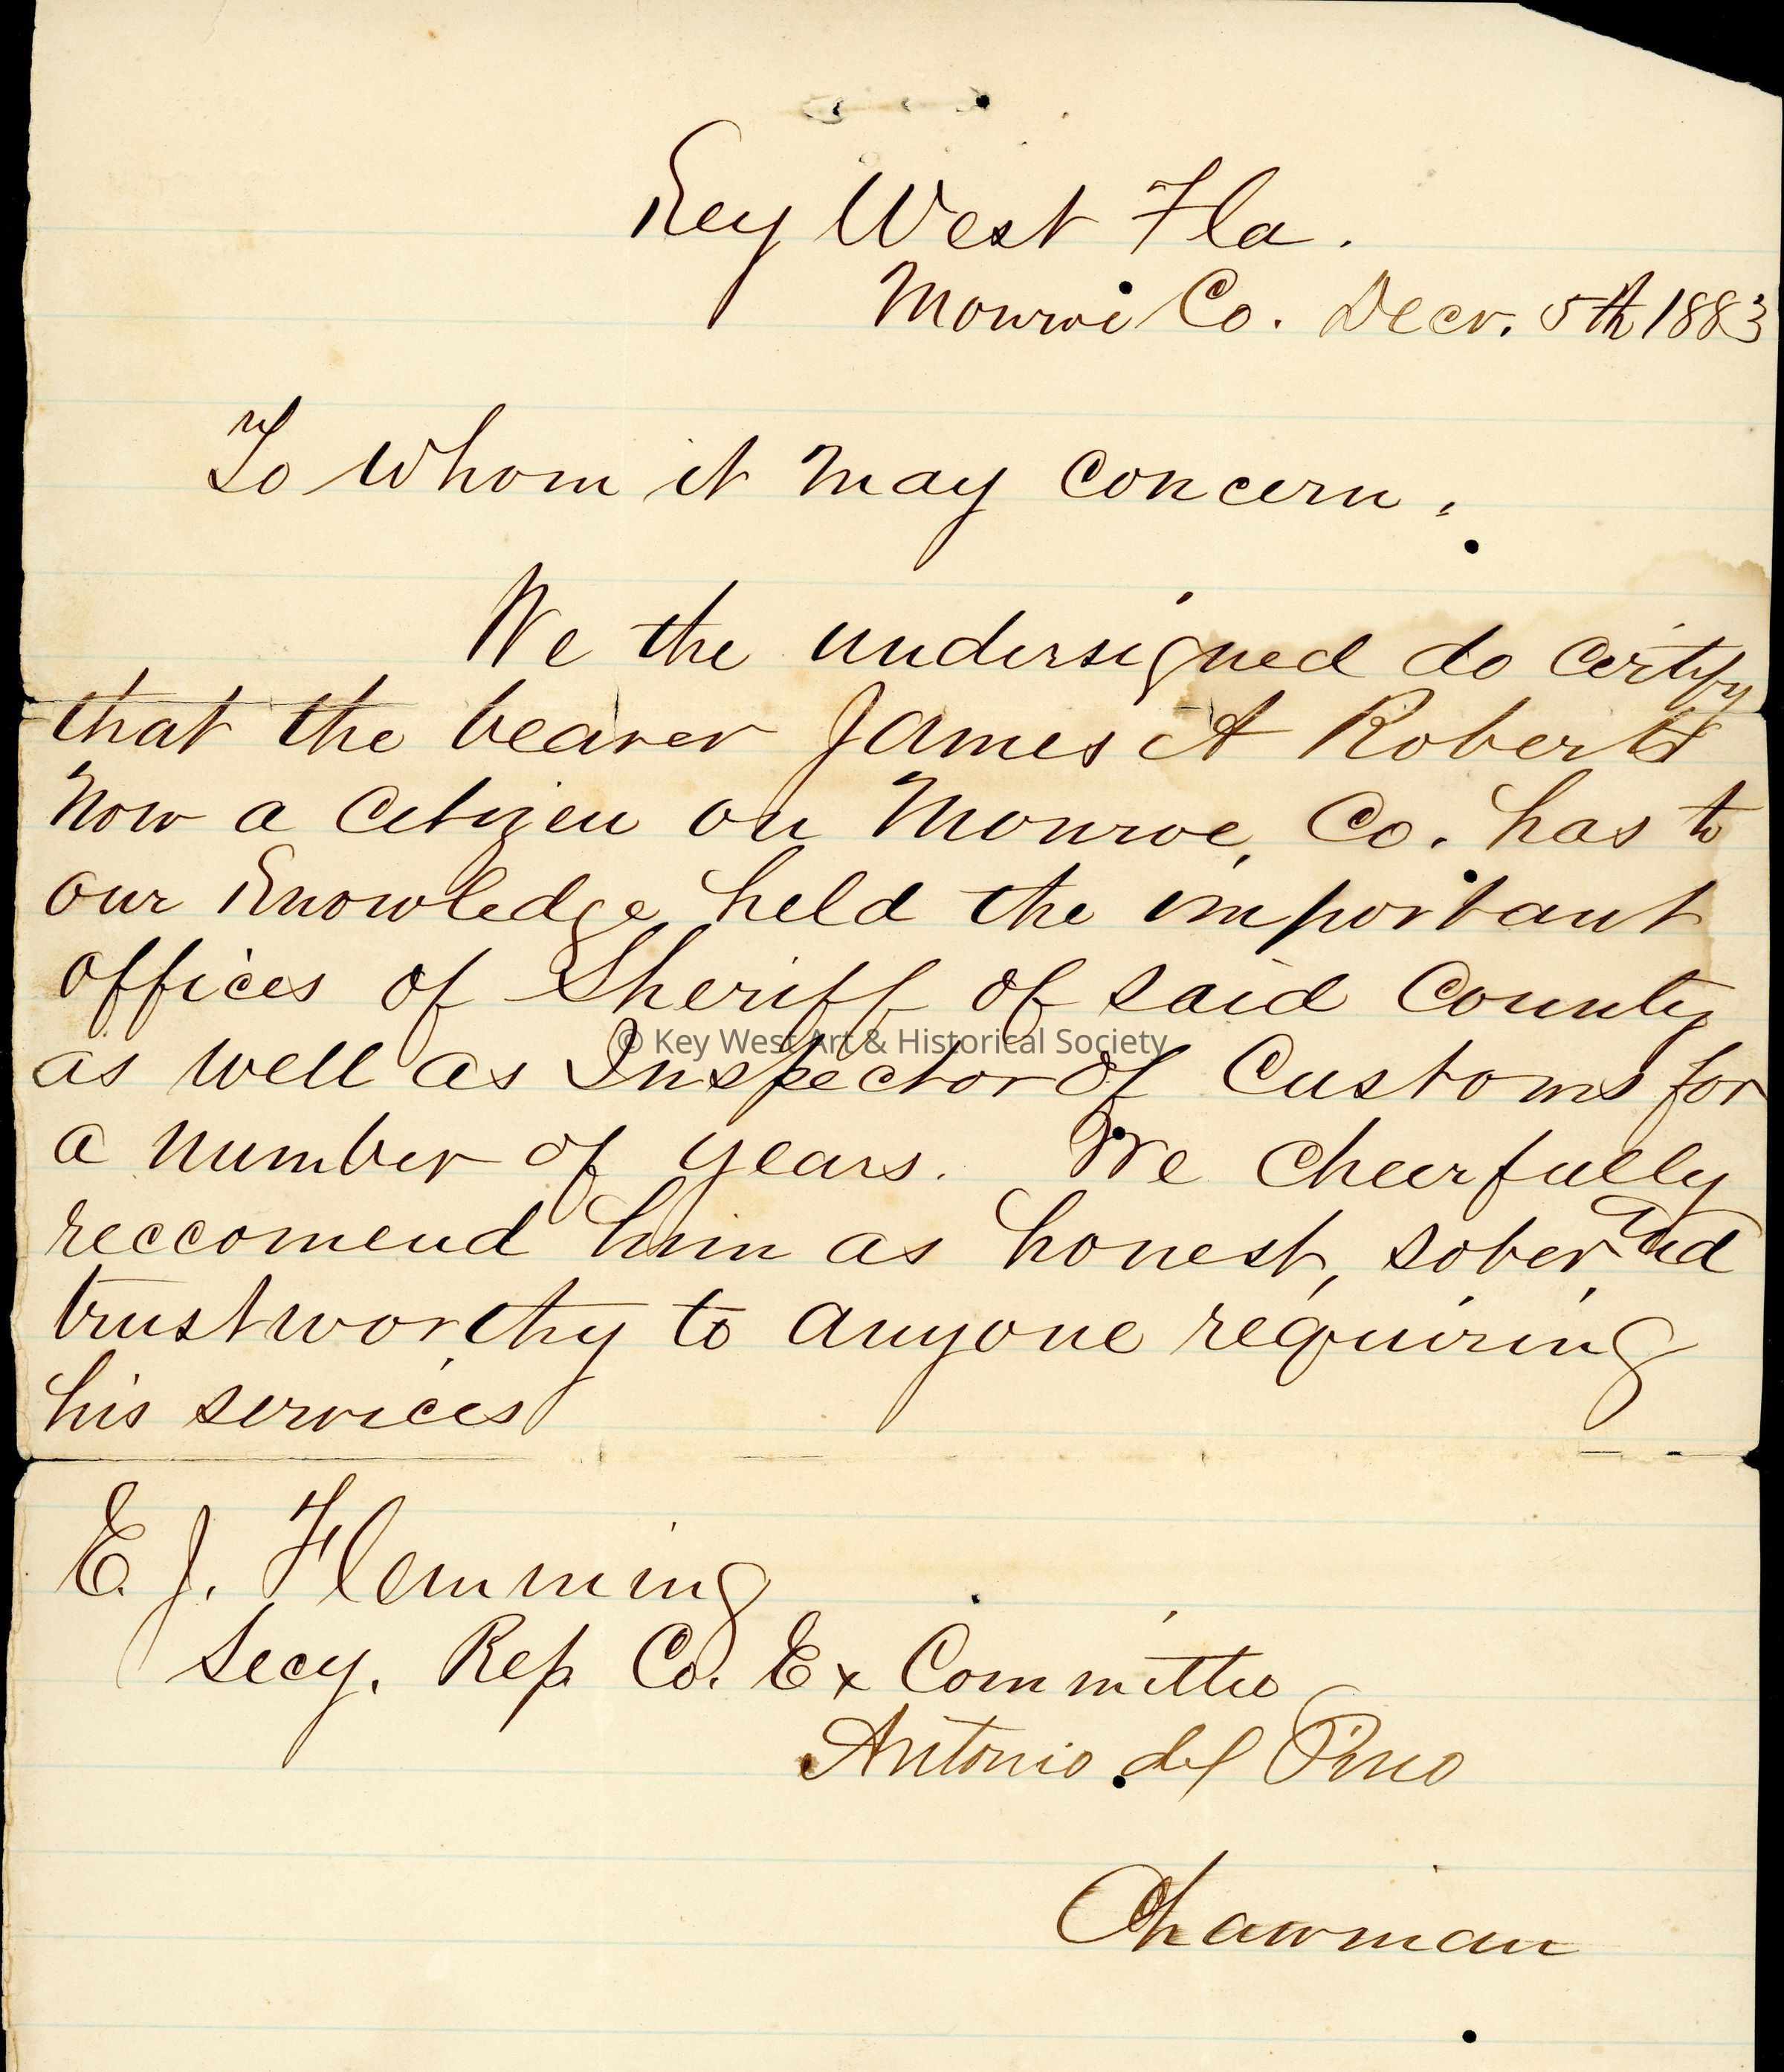 Key West Fla.
Monroe Co. Decr. 5th 1883
To Whom it May Concern:
We the undersigned do certify
that the bearer James A Roberts
Now a Citizen on Monroe, Co. has to
our Knowledge held the important
offices of Sheriff of said County
© Key West Art & Historical Society
as well as Inspector of Customs for
a number of years. We cheerfully
reccomend him as honest, sober and
trustworthy to anyone requiring
his services
E. J. Flemming
Secy. Rep. Co. Ex Committee
Antonio del Pino
Chairman